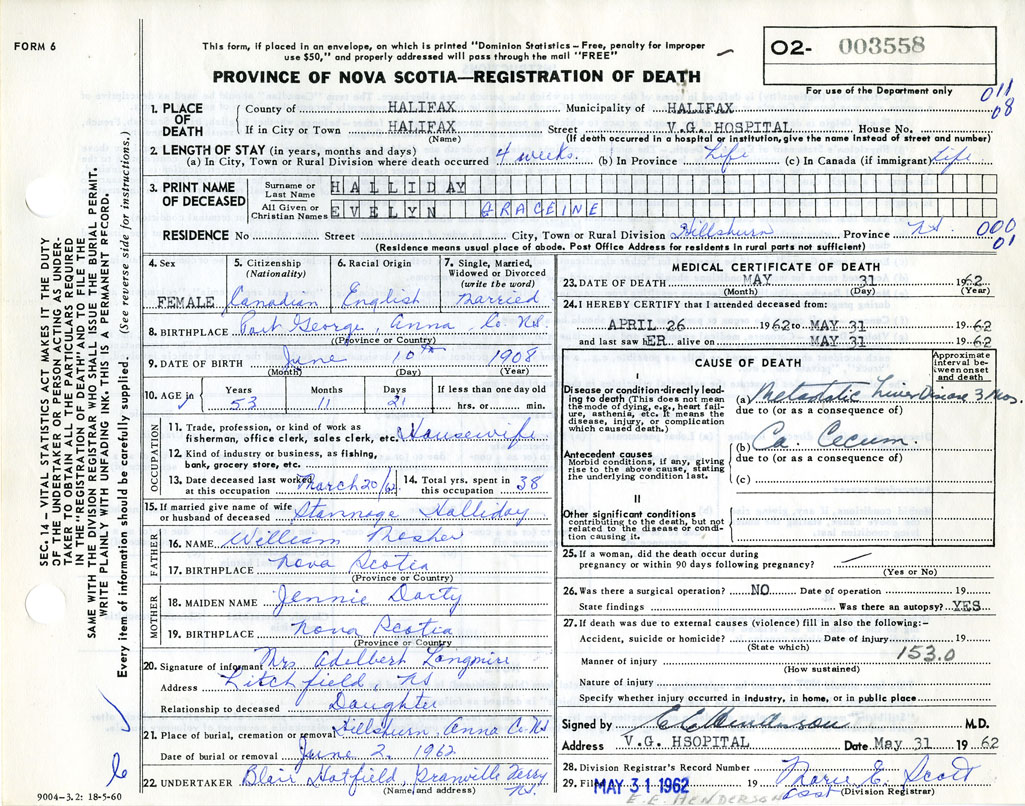 FORM 6
This form, if placed in an envelope, on which is printed "Dominion Statistics – Free, penalty for improper
use $50," and properly addressed will pass through the mail "FREE"
O2- 003558
PROVINCE OF NOVA SCOTIA—REGISTRATION OF DEATH
For use of the Department only
011
08
1. PLACE OF DEATH
County of HALIFAX Municipality of HALIFAX
If in City or Town HALIFAX Street V.G. HOSPITAL House No.
(Name) (If death occurred in a hospital or institution, give the name instead of street and number)
2. LENGTH OF STAY (in years, months and days)
(a) In City, Town or Rural Division where death occurred 4 weeks. (b) In Province Life (c) In Canada (if immigrant) Life
3. PRINT NAME OF DECEASED
Surname or Last Name HALLIDAY
All Given or Christian Names EVELYN GRACEINE
RESIDENCE No Street City, Town or Rural Division Hillsburn Province NS 000
01
(Residence means usual place of abode. Post Office Address for residents in rural parts not sufficient)
4. Sex FEMALE
5. Citizenship (Nationality) Canadian
6. Racial Origin English
7. Single, Married, Widowed or Divorced (write the word) Married
8. BIRTHPLACE Port George, Anna Co. NS.
(Province or Country)
9. DATE OF BIRTH June 10th 1908
(Month) (Day) (Year)
10. AGE in Years 53 Months 11 Days 21 If less than one day old hrs. or min.
OCCUPATION
11. Trade, profession, or kind of work as
fisherman, office clerk, sales clerk, etc. Housewife
12. Kind of industry or business, as fishing,
bank, grocery store, etc.
13. Date deceased last worked at this occupation March 20/62 14. Total yrs. spent in this occupation 38
15. If married give name of wife or husband of deceased Stannage Halliday
FATHER
16. NAME William Mosher
17. BIRTHPLACE Nova Scotia
(Province or Country)
MOTHER
18. MAIDEN NAME Jennie Darty
19. BIRTHPLACE Nova Scotia
(Province or Country)
20. Signature of informant Mrs Adelbert Longmire
Address Litchfield, NS
Relationship to deceased Daughter
21. Place of burial, cremation or removal Hillsburn, Anna Co. NS
Date of burial or removal June 2, 1962
22. UNDERTAKER Blair Hatfield, Granville Ferry NS.
(Name and address)
MEDICAL CERTIFICATE OF DEATH
23. DATE OF DEATH MAY 31 1962
(Month) (Day) (Year)
24. I HEREBY CERTIFY that I attended deceased from:
APRIL 26 1962 to MAY 31 1962
and last saw hER alive on MAY 31 1962
CAUSE OF DEATH
Approximate interval between onset and death
I
Disease or condition directly leading to death (This does not mean the mode of dying, e.g., heart failure, asthenia, etc. It means the disease, injury, or complication which caused death.)
(a) Metastatic Liver Disease 3 Mos.
due to (or as a consequence of)
(b) Ca. Cecum.
due to (or as a consequence of)
(c)
Antecedent causes
Morbid conditions, if any, giving rise to the above cause, stating the underlying condition last.
II
Other significant conditions
contributing to the death, but not related to the disease or condition causing it.
25. If a woman, did the death occur during
pregnancy or within 90 days following pregnancy?
(Yes or No)
26. Was there a surgical operation? NO Date of operation 19
State findings Was there an autopsy? YES
27. If death was due to external causes (violence) fill in also the following:-
Accident, suicide or homicide? Date of injury 19
(State which)
153.0
Manner of injury
(How sustained)
Nature of injury
Specify whether injury occurred in industry, in home, or in public place
Signed by E E Henderson M.D.
Address V.G. HSOPITAL Date May 31 1962
28. Division Registrar's Record Number
29. Filed MAY 31 1962 Marie E. Scott
(Division Registrar)
E.E. HENDERSON
SEC. 14 – VITAL STATISTICS ACT MAKES IT THE DUTY
OF THE UNDERTAKER OR PERSON ACTING AS UNDER-
TAKER TO OBTAIN ALL THE PARTICULARS REQUIRED
IN THE "REGISTRATION OF DEATH" AND TO FILE THE
SAME WITH THE DIVISION REGISTRAR WHO SHALL ISSUE THE BURIAL PERMIT.
WRITE PLAINLY WITH UNFADING INK. THIS IS A PERMANENT RECORD.
Every item of information should be carefully supplied. (See reverse side for instructions.)
6
9004-3.2: 18-5-60